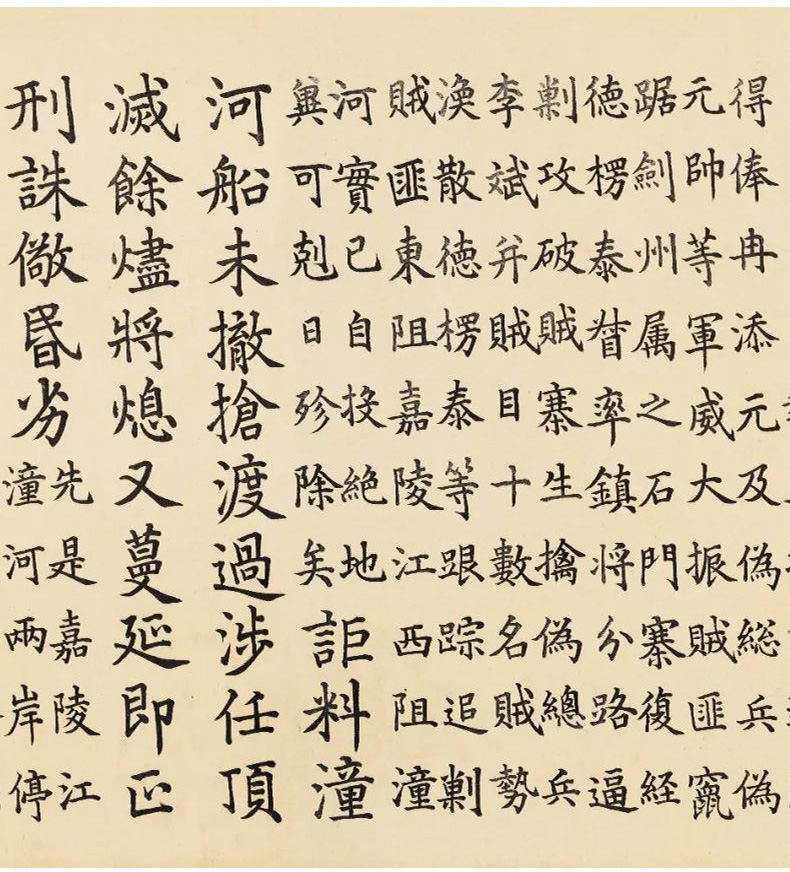 得俸冉添元及偽総兵偽
元帥等軍威大振賊匪竄
踞劍州属之石門寨復経
德楞泰督率鎮将分路逼
剿攻破賊寨生擒偽總兵
李斌并賊目十數名賊勢
渙散德楞泰等跟踪追剿
賊匪東阻嘉陵江西阻潼
河實已自投絶地
冀可剋日殄除矣
詎料潼
河船未撤搶渡過涉任頂
滅餘燼將熄又蔓延即正
刑誅儆昬劣
先是嘉陵江
潼河兩岸停